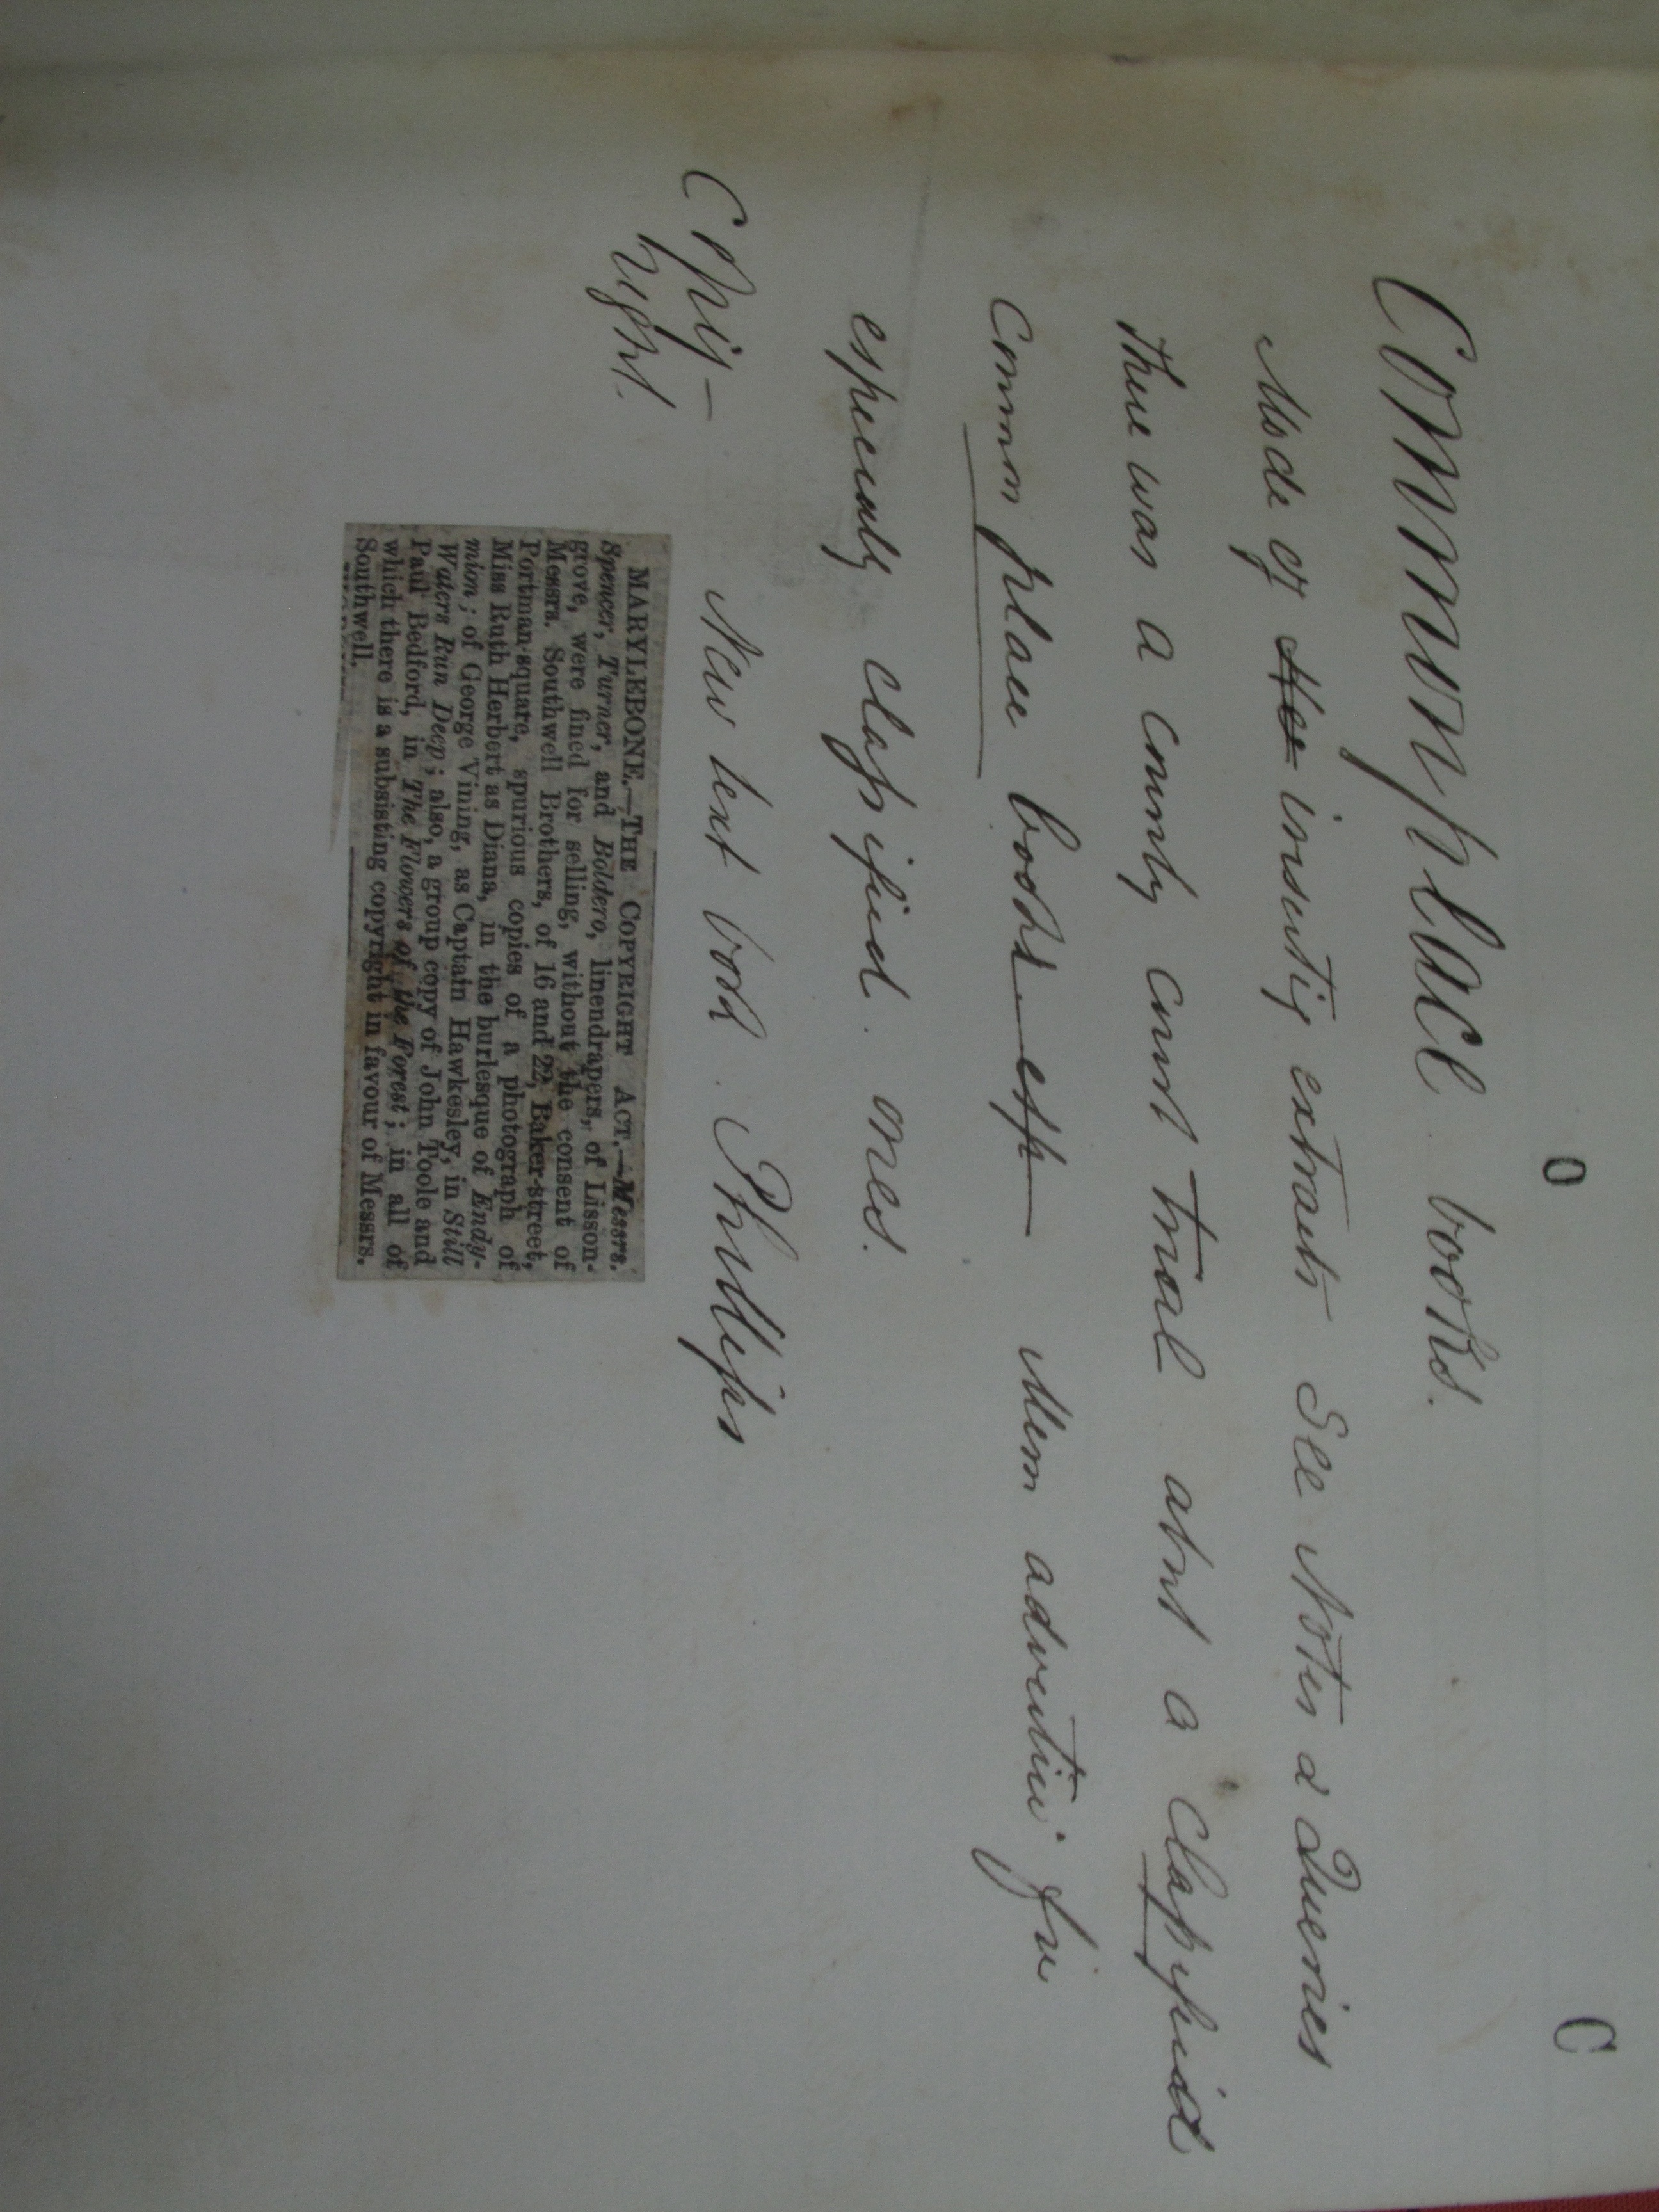 O C
Commonplace books.
Mode of He inserting extracts See Notes & Queries
There was a county court trial abt a Classified
Common place books esp Mem advertise for
especially classified ones.
Copy- New text book. Phillips
right.
MARYLEBONE.—THE COPYRIGHT ACT.—Messrs.
Spencer, Turner, and Boldero, linendrapers, of Lisson-
grove, were fined for selling, without the consent of
Messrs. Southwell Brothers, of 16 and 22, Baker-street,
Portman-square, spurious copies of a photograph of
Miss Ruth Herbert as Diana, in the burlesque of Endy-
mion; of George Vining, as Captain Hawkesley, in Still
Waters Run Deep; also, a group copy of John Toole and
Paul Bedford, in The Flowers of the Forest; in all of
which there is a subsisting copyright in favour of Messrs.
Southwell.